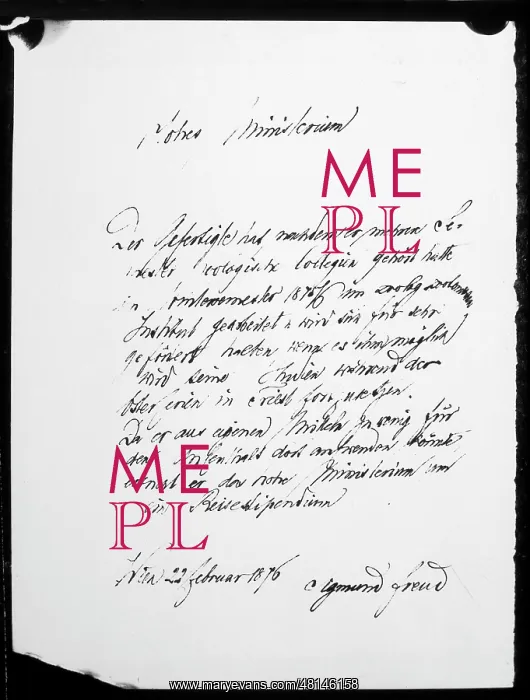 Hohes Ministerium
ME
PL
Der Gefertigte hat nachdem er mehrere Se-
mester zoologische Collegien gehört hatte
im Wintersemester 1875/6 im zoolog
Institut gearbeitet u wird sich für sehr
gefördert halten wenn es ihm möglich
wird seine Studien während der
Osterferien in Triest fortzusetzen.
Da er aus eigenen Mitteln zu wenig für
den Aufenthalt dort anwenden könnte
ME
er das hohe Ministerium um
ein Reisestipendium
PL
Wien 22 Februar 1876
Sigmund Freud
www.maryevans.com/48146158